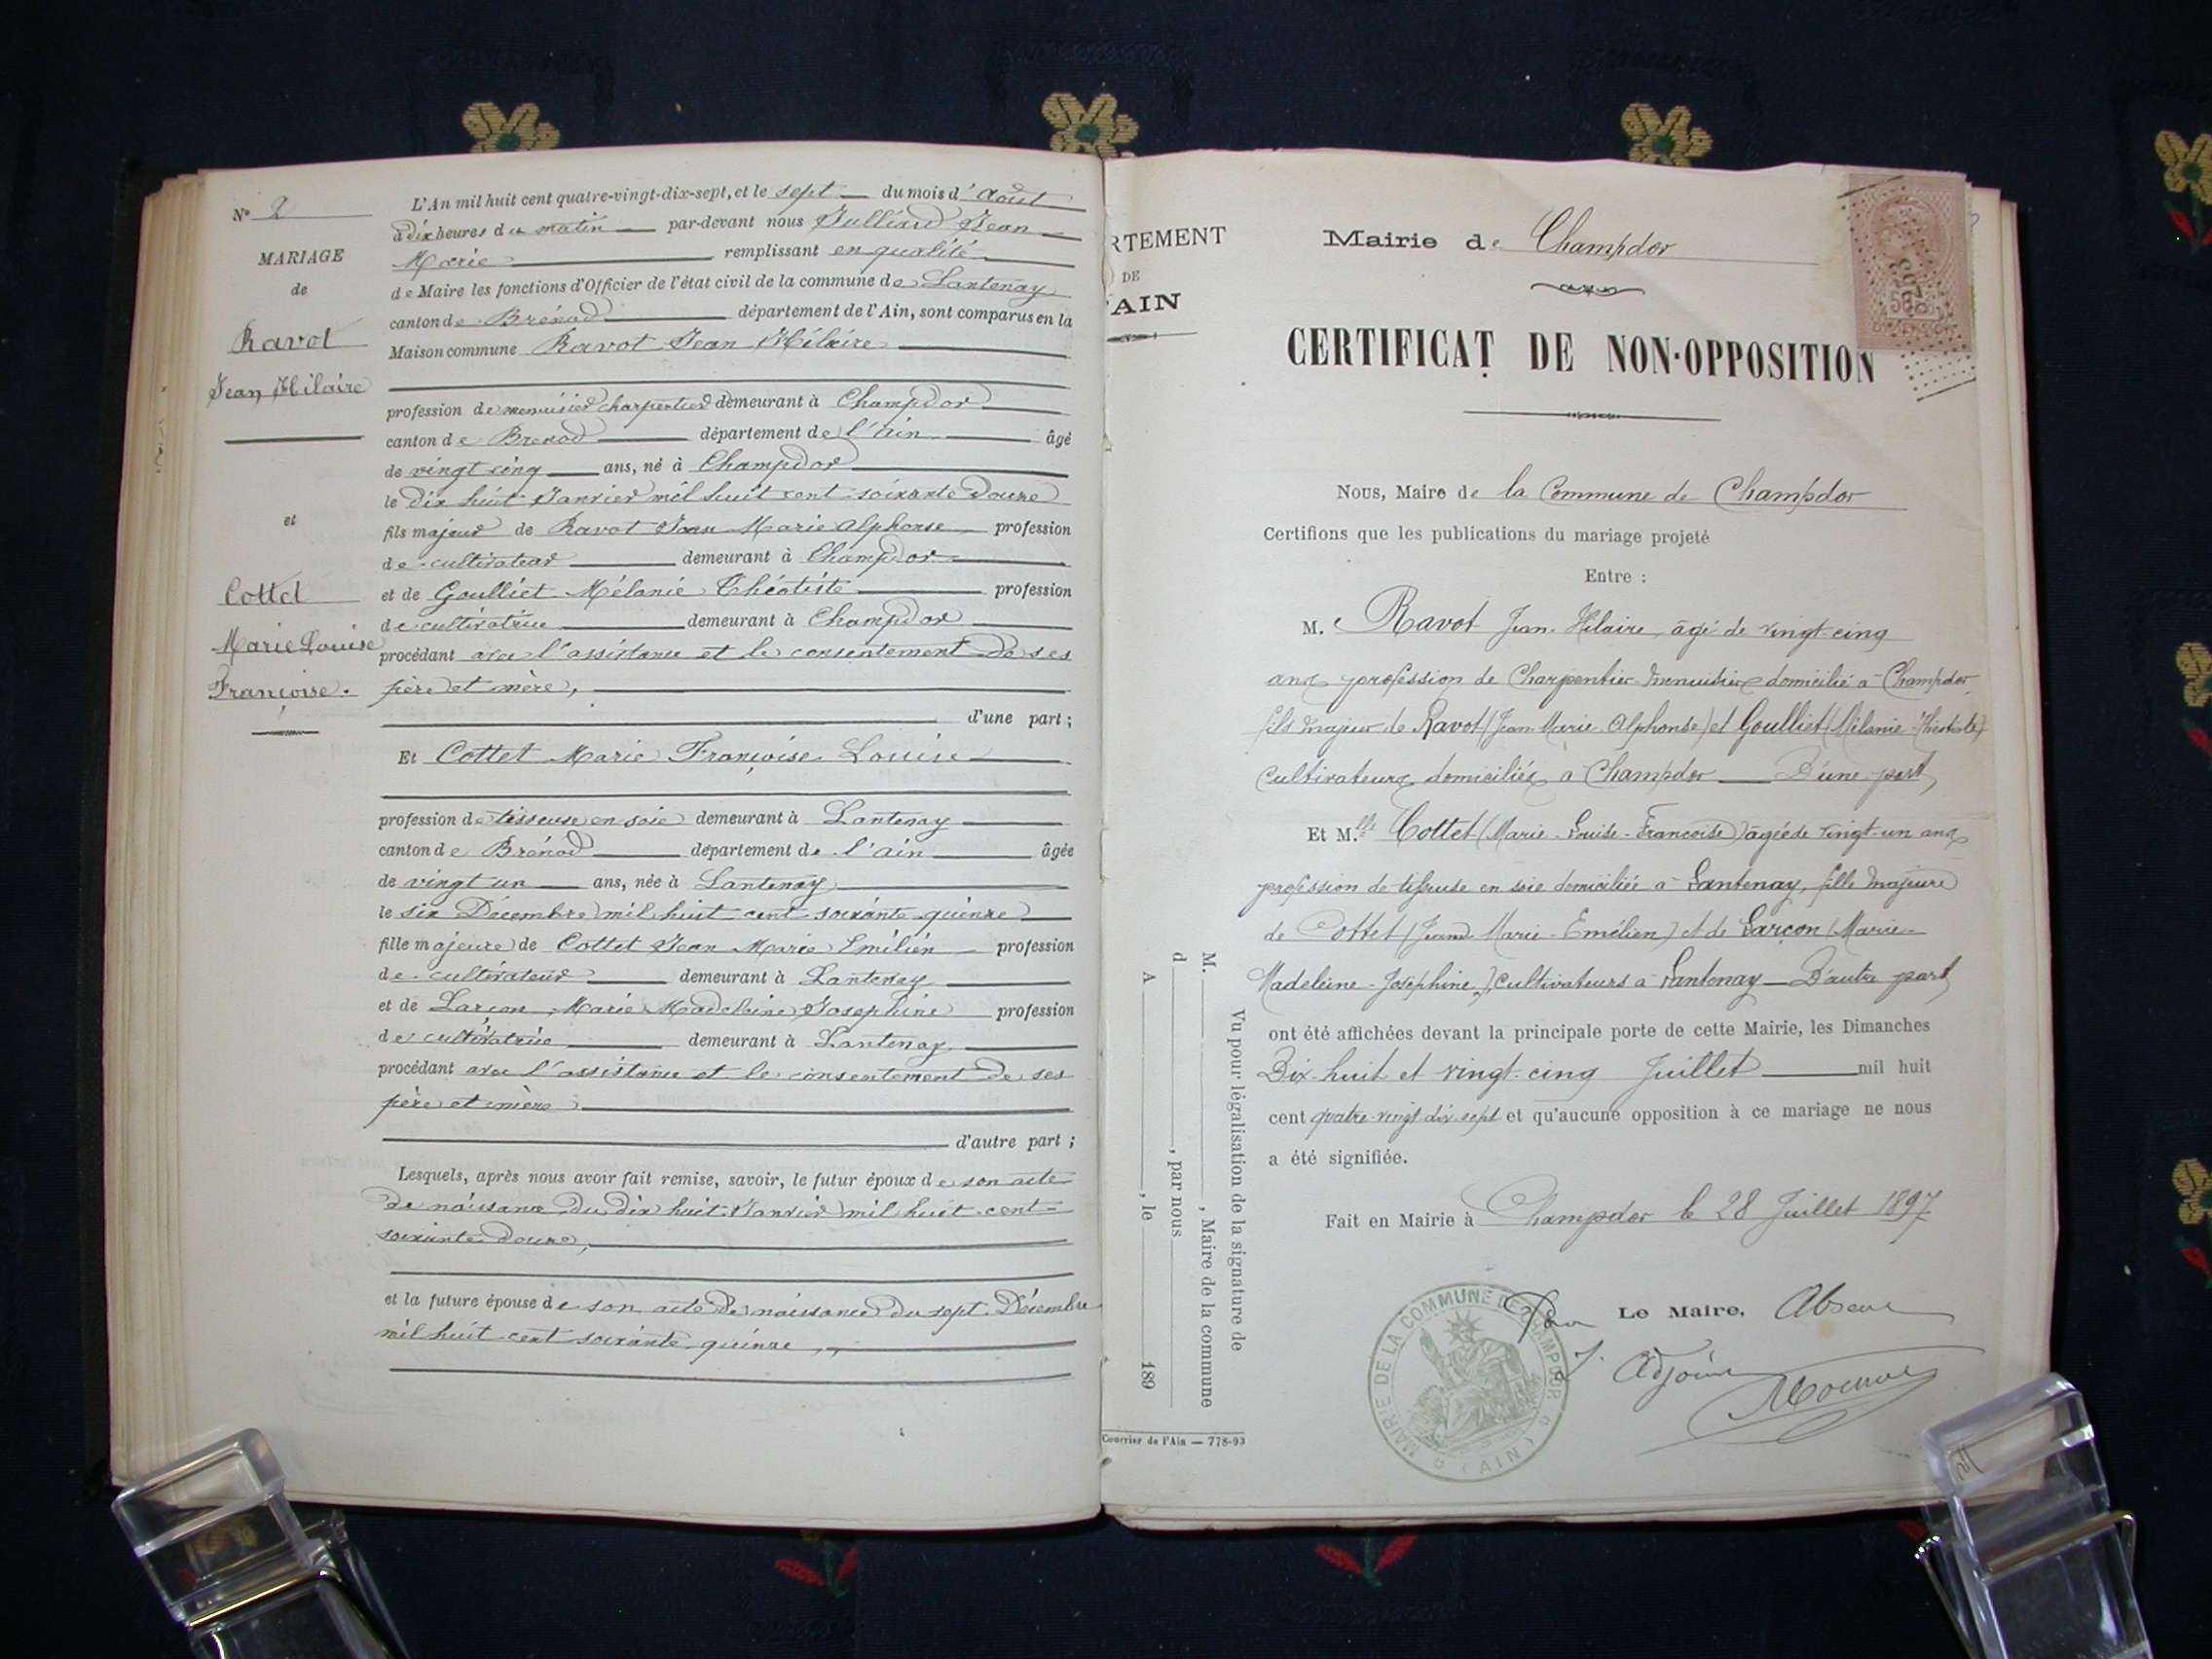 N° 2
MARIAGE
de
Ravot
Jean Hilaire
et
Cottet
Marie Louise
Françoise.
L'An mil huit cent quatre-vingt-dix-sept, et le sept du mois d'Août
à dix heures du matin par-devant nous Julliard Jean
Marie remplissant en qualité
de Maire les fonctions d'Officier de l'état civil de la commune de Lantenay
canton de Brénod département de l'Ain, sont comparus en la
Maison commune Ravot Jean Hilaire
profession de menuisier charpentier demeurant à Champdor
canton de Brenod département de l'Ain âgé
de vingt cinq ans, né à Champdor
le dix huit Janvier mil huit cent soixante douze
fils majeur de Ravot Jean Marie Alphonse profession
de cultivateur demeurant à Champdor
et de Goulliet Mélanie Théotiste profession
de cultivatrice demeurant à Champdor
procédant avec l'assistance et le consentement de ses
père et mère,
d'une part ;
Et Cottet Marie Françoise Louise
profession de tisseuse en soie demeurant à Lantenay
canton de Brénod département de l'Ain âgée
de vingt un ans, née à Lantenay
le six Décembre mil huit cent soixante quinze
fille majeure de Cottet Jean Marie Emilien profession
de cultivateur demeurant à Lantenay
et de Larçon Marie Madeleine Josephine profession
de cultivatrice demeurant à Lantenay
procédant avec l'assistance et le consentement de ses
père et mère
d'autre part ;
Lesquels, après nous avoir fait remise, savoir, le futur époux de son acte
de naissance du dix huit Janvier mil huit cent
soixante douze,
et la future épouse de son acte de naissance du sept Décembre
mil huit cent soixante quinze,
RTEMENT
DE
'AIN
Mairie de Champdor
CERTIFICAT DE NON-OPPOSITION
Nous, Maire de la Commune de Champdor
Certifions que les publications du mariage projeté
Entre :
M. Ravot Jean Hilaire, âgé de vingt cinq
ans profession de Charpentier Menuisier domicilié à Champdor
fils majeur de Ravot (Jean Marie Alphonse) et Goulliet (Mélanie Théotiste)
Cultivateurs domiciliés à Champdor D'une part,
Et M.lle Cottet (Marie-Louise-Françoise) âgée de vingt un ans
profession de tisseuse en soie domiciliée à Lantenay, fille majeure
de Cottet (Jean Marie-Emélien) et de Larçon (Marie-
Madeleine-Joséphine), Cultivateurs à Lantenay D'autre part,
ont été affichées devant la principale porte de cette Mairie, les Dimanches
Dix-huit et vingt-cinq Juillet mil huit
cent quatre-vingt dix sept et qu'aucune opposition à ce mariage ne nous
a été signifiée.
Fait en Mairie à Champdor le 28 Juillet 1897
Pour Le Maire, Absent
L' Adjoint
MAIRIE DE LA COMMUNE DE CHAMPDOR
(AIN)
Vu pour légalisation de la signature de
M. , Maire de la commune
d , par nous
A , le 189
Courrier de l'Ain — 778-93